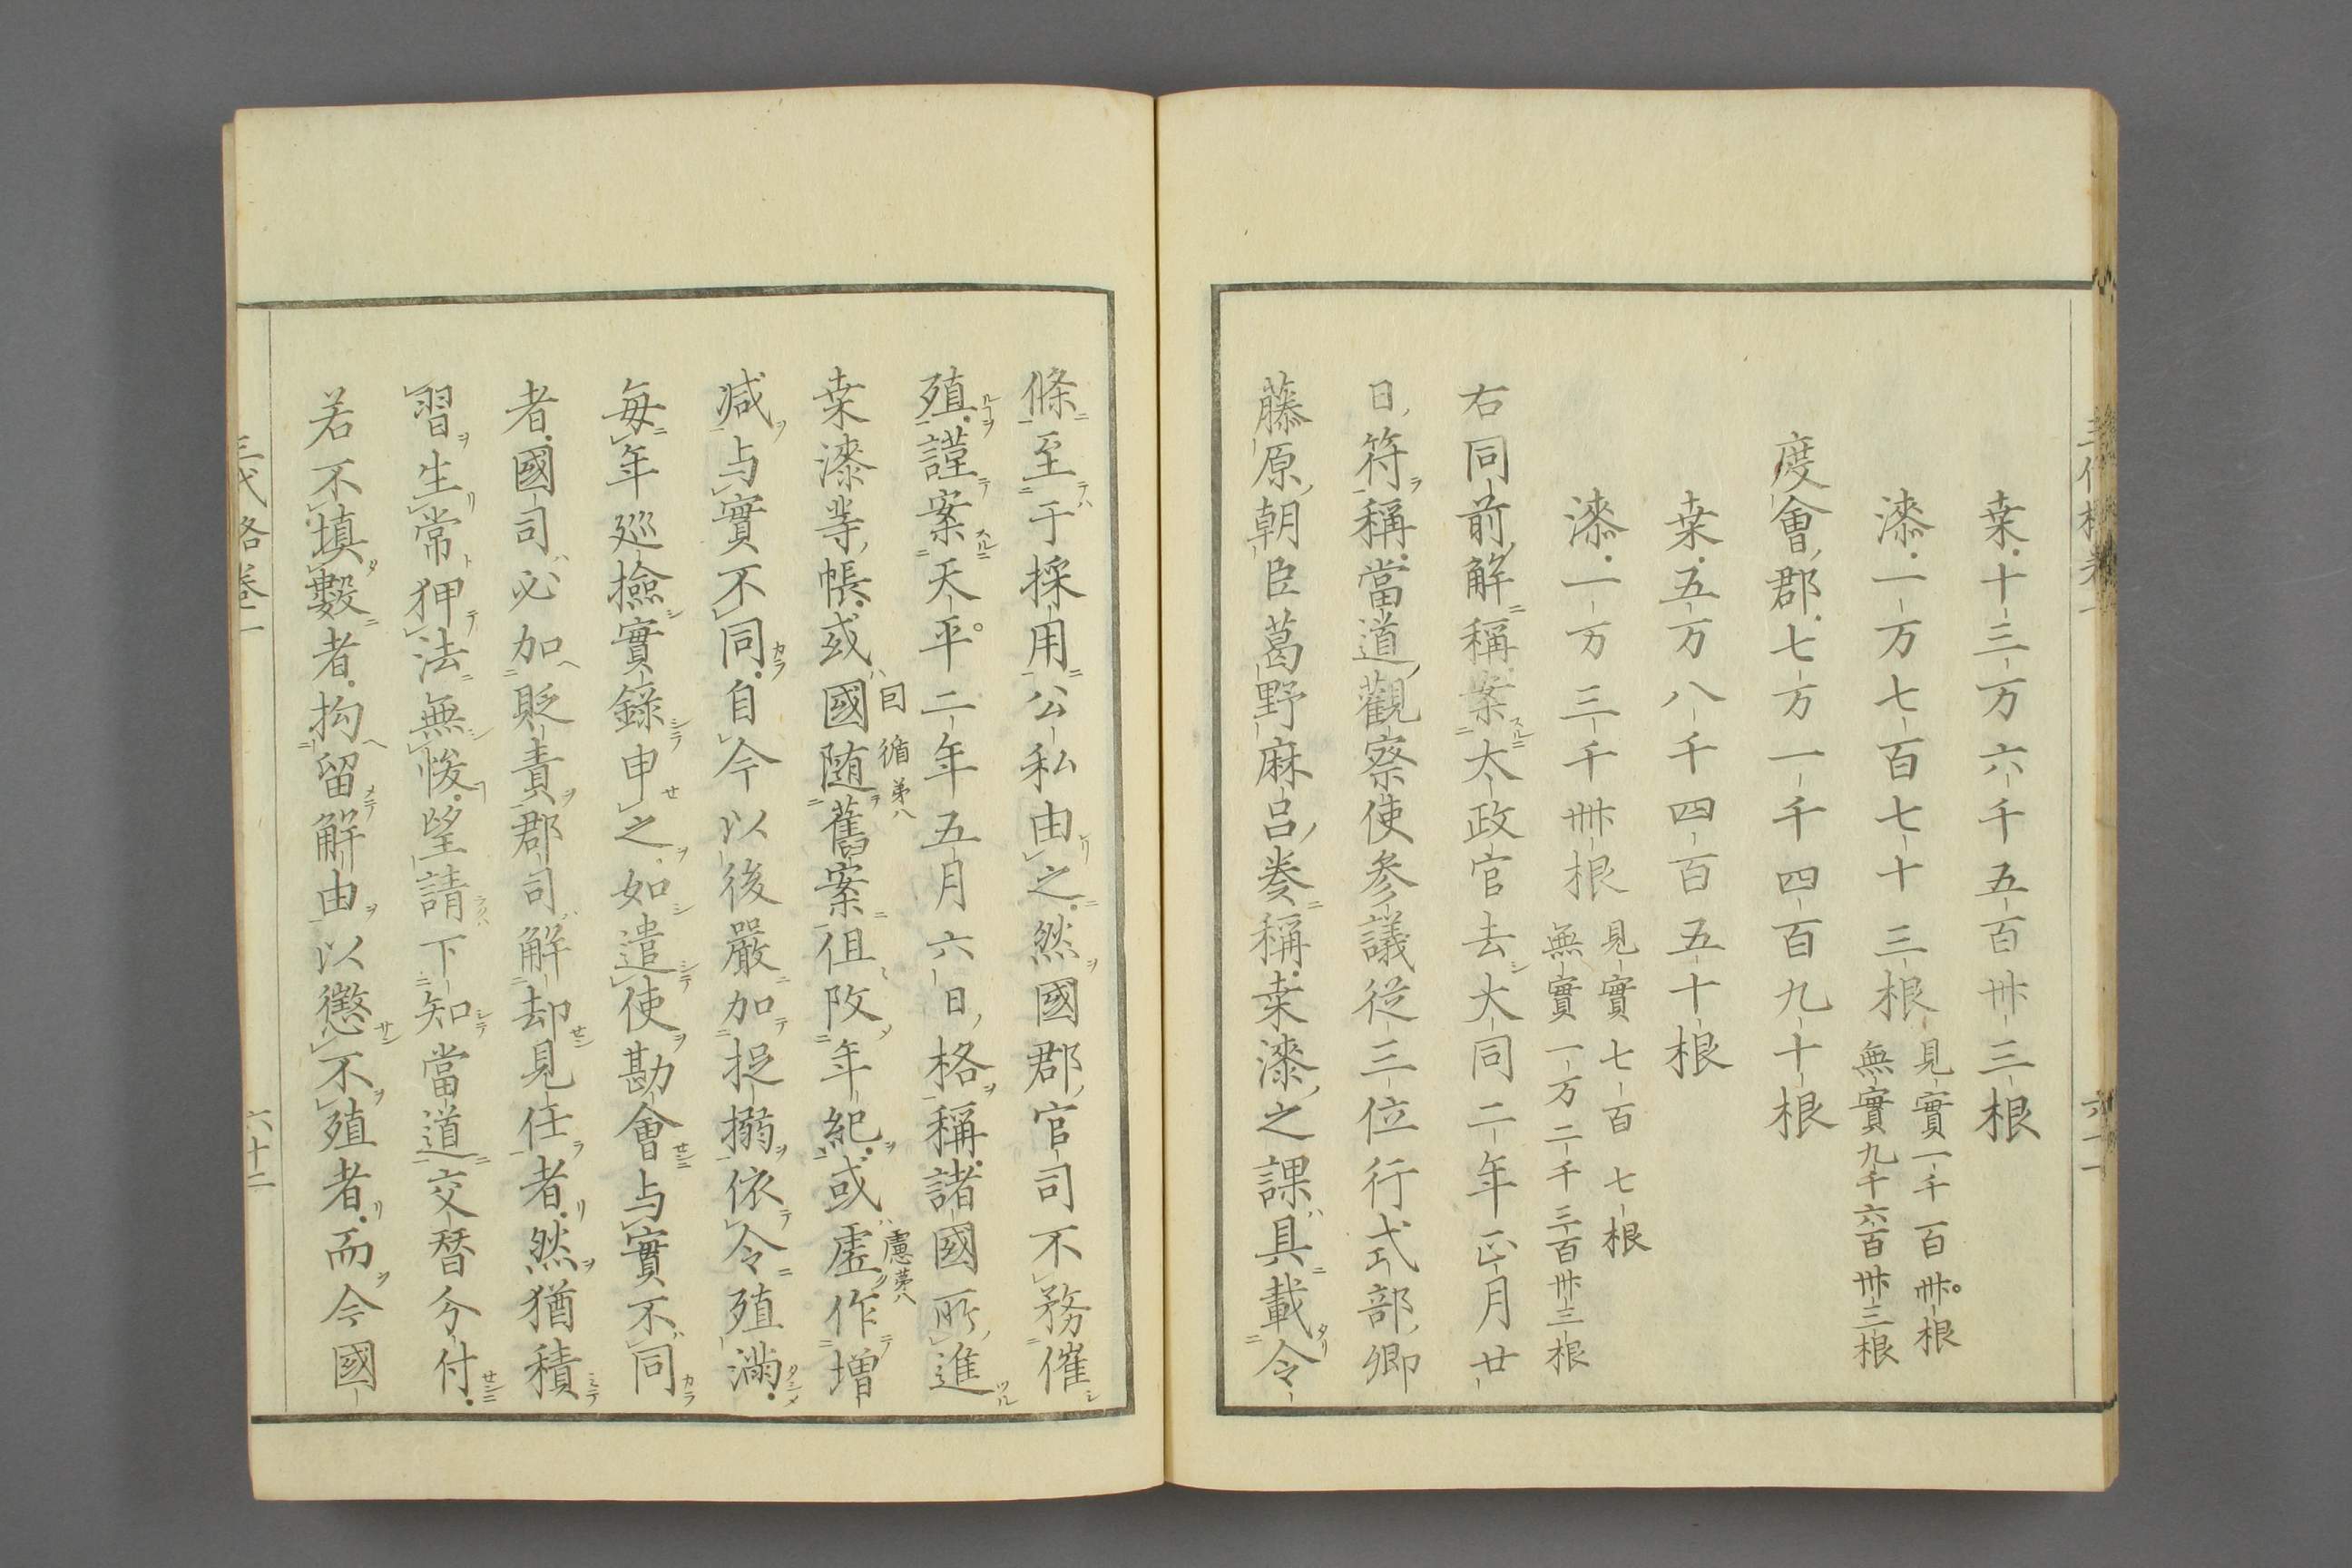 桒十三万六千五百卅三根
漆一万七百七十三根 見實一千百卌根 無實九千六百卅三根
度會郡七万一千四百九十根
桒五万八千四百五十根
漆一万三千卌根 見實七百七根 無實一万二千三百卅三根
右同前解稱案太政官去大同二年正月廿
日符稱當道觀察使參議從三位行式部卿
藤原朝臣葛野麻呂奏稱桒漆之課具載令
條至于採用公私由之然國郡官司不務催
殖謹案天平二年五月六日格稱諸國所進
桒漆等帳或國随舊案伹改年紀或虛作増
囙 循苐八
慮苐八
减与實不同自今以後嚴加捉搦依令殖滿
毎年巡撿實錄申之如遣使勘會与實不同
者國司必加貶責郡司解却見任者然猶積
習生常狎法無悛望請下知當道交替分付
若不填數者拘留解由以懲不殖者而今國
三代格卷一
六十二